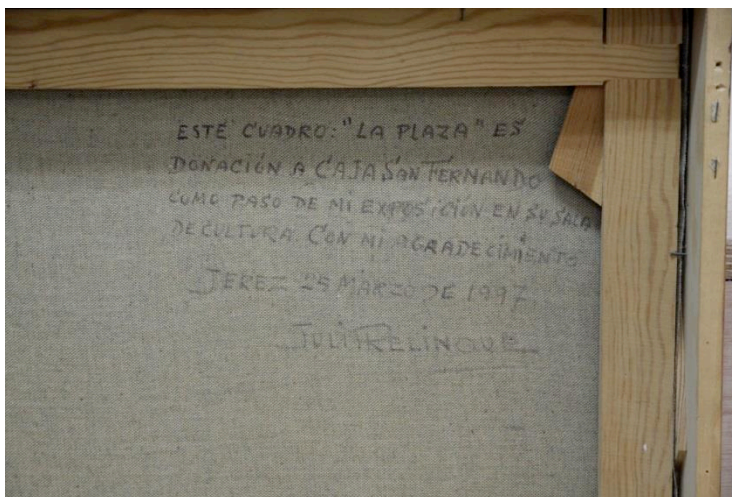 ESTE CUADRO: "LA PLAZA" ES
DONACIÓN A CAJA SAN FERNANDO
COMO PASO DE MI EXPOSICIÓN EN SU SALA
DE CULTURA. CON MI AGRADECIMIENTO
JEREZ 25 MARZO DE 1997
JULI RELINQUE